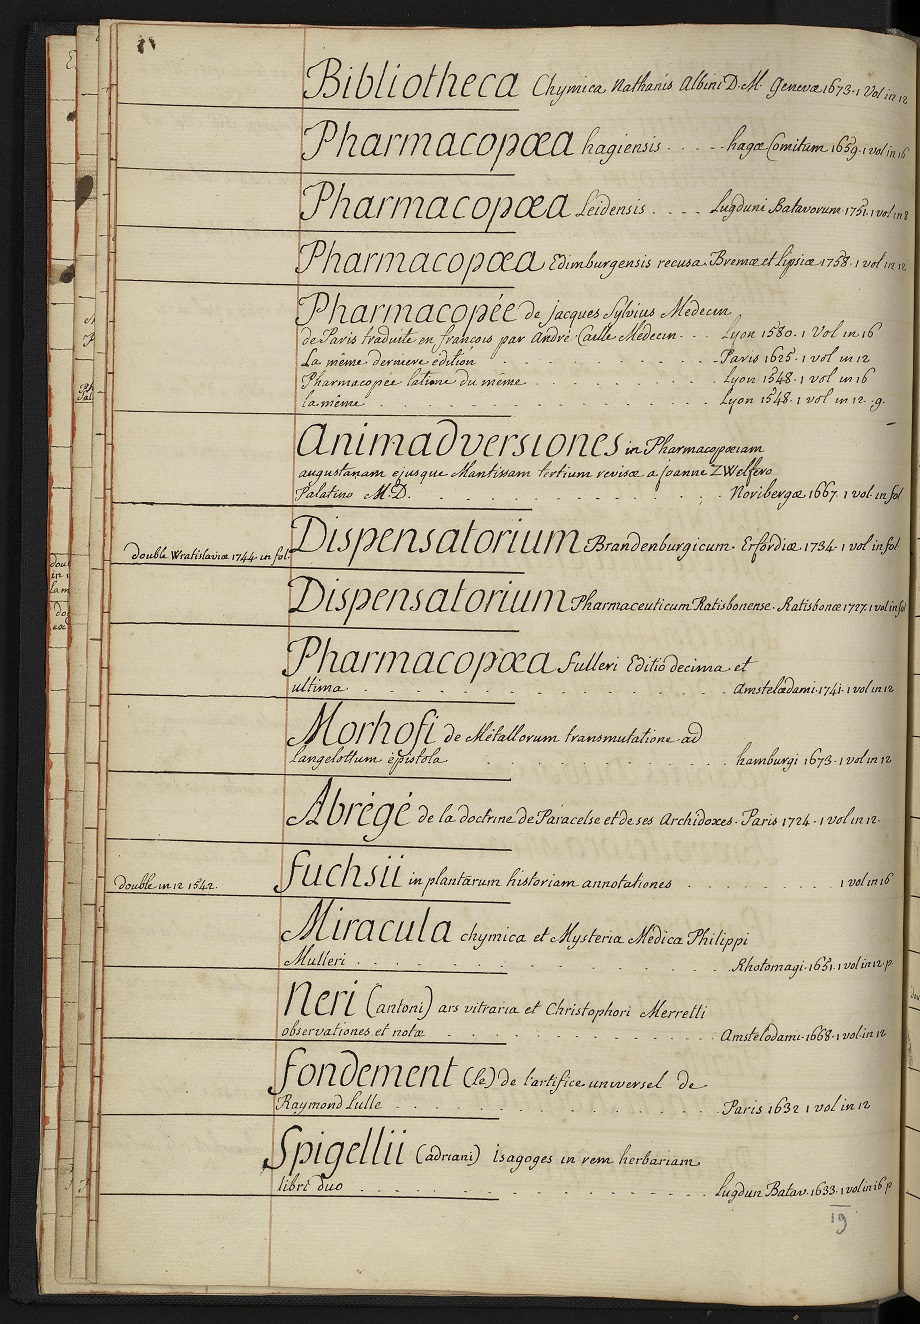 Bibliotheca Chymica Nathanis Albini D. M. Genevæ 1673. 1 Vol in 12
Pharmacopœa hagiensis . . . . . hagæ Comitum 1659. 1 vol in 16
Pharmacopœa Leidensis . . . . Lugduni Batavorum. 1751. 1 vol in 8
Pharmacopœa Edimburgensis recusa Bremæ et Lipsiæ 1758. 1 vol in 12
Pharmacopée de jacques Sylvius Medecin
de Paris traduite en françois par André Caille Medecin . . . Lyon 1580. 1 Vol in 16
La même derniere edition . . . . . . . Paris 1625. 1 vol in 12
Pharmacopée latine du même . . . . . . . Lyon 1548. 1 vol in 16
la même . . . . . . . . . . . . Lyon 1548. 1 vol in 12. g.
Animadversiones in Pharmacopœiam
augustanam ejusque Mantissam tertium revisæ a joanne ZWelfero
Palatino M. D. . . . . . . . . . . . Noribergæ 1667. 1 vol. in fol
double Wratislaviæ 1744. in fol.
Dispensatorium Brandenburgicum. Erfordiæ 1734. 1 vol in fol.
Dispensatorium Pharmaceuticum Ratisbonense. Ratisbonæ 1727. 1 vol in fol
Pharmacopœa fulleri Editio decima et
ultima . . . . . . . . . . . . Amstelædami. 1741. 1 vol in 12
Morhofi de Metallorum transmutatione ad
langelottum epistola . . . . . . . . hamburgi 1673. 1 vol in 12
Abrégé de la doctrine de Paracelse et de ses Archidoxes. Paris 1724. 1 vol in 12.
double in 12 1542.
fuchsii in plantarum historiam annotationes . . . . . . . 1 vol in 16
Miracula chymica et Mysteria Medica Philippi
Mulleri . . . . . . . . . . . . Rhotomagi. 1651. 1 vol in 12. p.
Neri (antoni) ars vitraria et Christophori Merretti
observationes et notæ . . . . . . . . Amstelodami. 1668. 1 vol. in 12
fondement (le) de l'artifice universel de
Raymond Lulle . . . . . . . . . . Paris 1632 1 vol in 12
Spigellii (adriani) isagoges in rem herbariam
libri duo . . . . . . . . . . . . Lugdun Batav. 1633. 1 vol in 16 p
19